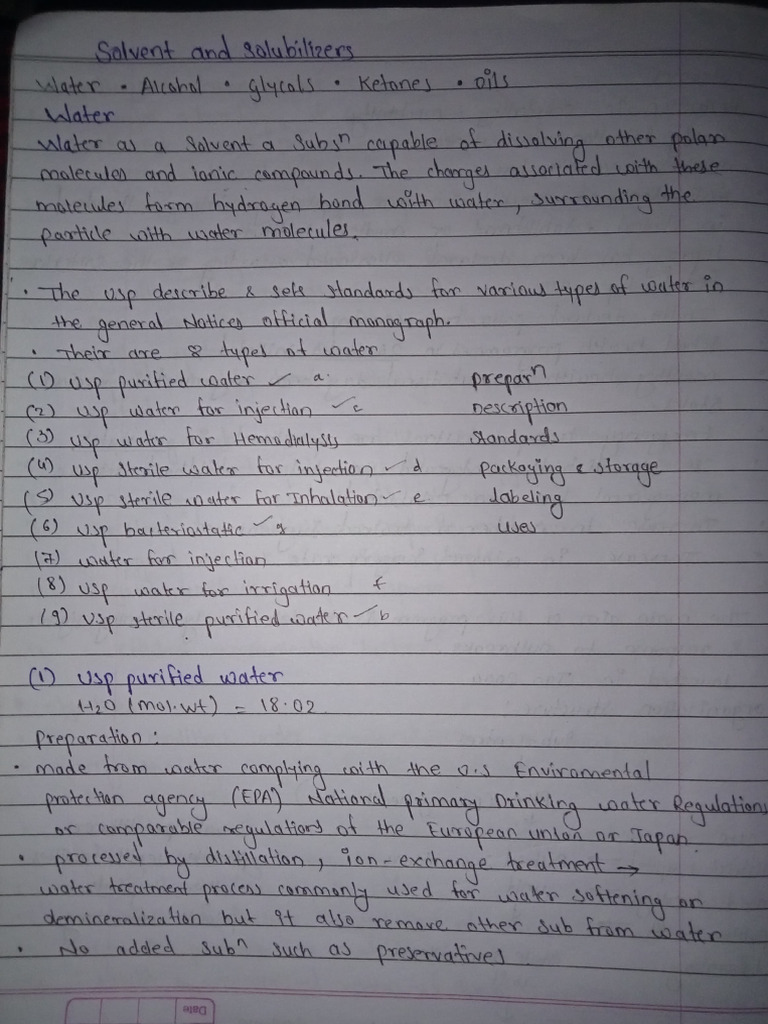 Solvent and solubilizers
Water • Alcohol • Glycols • Ketones • oils
Water
Water as a Solvent a Subsⁿ capable of dissolving other polar
molecules and ionic compounds. The charges associated with these
molecules form hydrogen bond with water, surrounding the
particle with water molecules.
• The USP describe & sets standards for various types of water in
the general Notices official monograph.
• Their are 8 types of water
(1) USP purified water ✓ a.
preparⁿ
(2) USP water for injection ✓ c
Description
(3) USP water for Hemodialysis
Standards
(4) USP Sterile water for injection ✓ d
packaging & storage
(5) USP sterile water for Inhalation ✓ e
labeling
(6) USP bacteriostatic ✓ g
uses
(7) water for injection
(8) USP water for irrigation f
(9) USP sterile purified water ✓ b
(1) USP purified water
H2O (mol.wt) = 18.02
Preparation :
• made from water complying with the U.S Enviromental
protection agency (EPA) National primary Drinking water Regulations
or comparable regulations of the European union or Japan.
• processed by distillation, ion-exchange treatment →
water treatment process commonly used for water softening or
demineralization but it also remove other sub from water
• No added subⁿ such as preservatives
Date